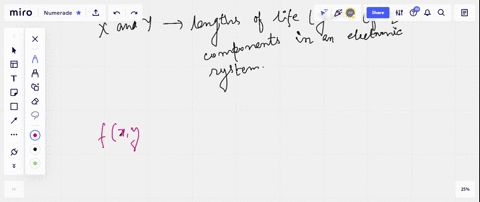 miro Numerade Share
X and Y → lengths of life (y
components in an electronic
system.
f(x,y
25%